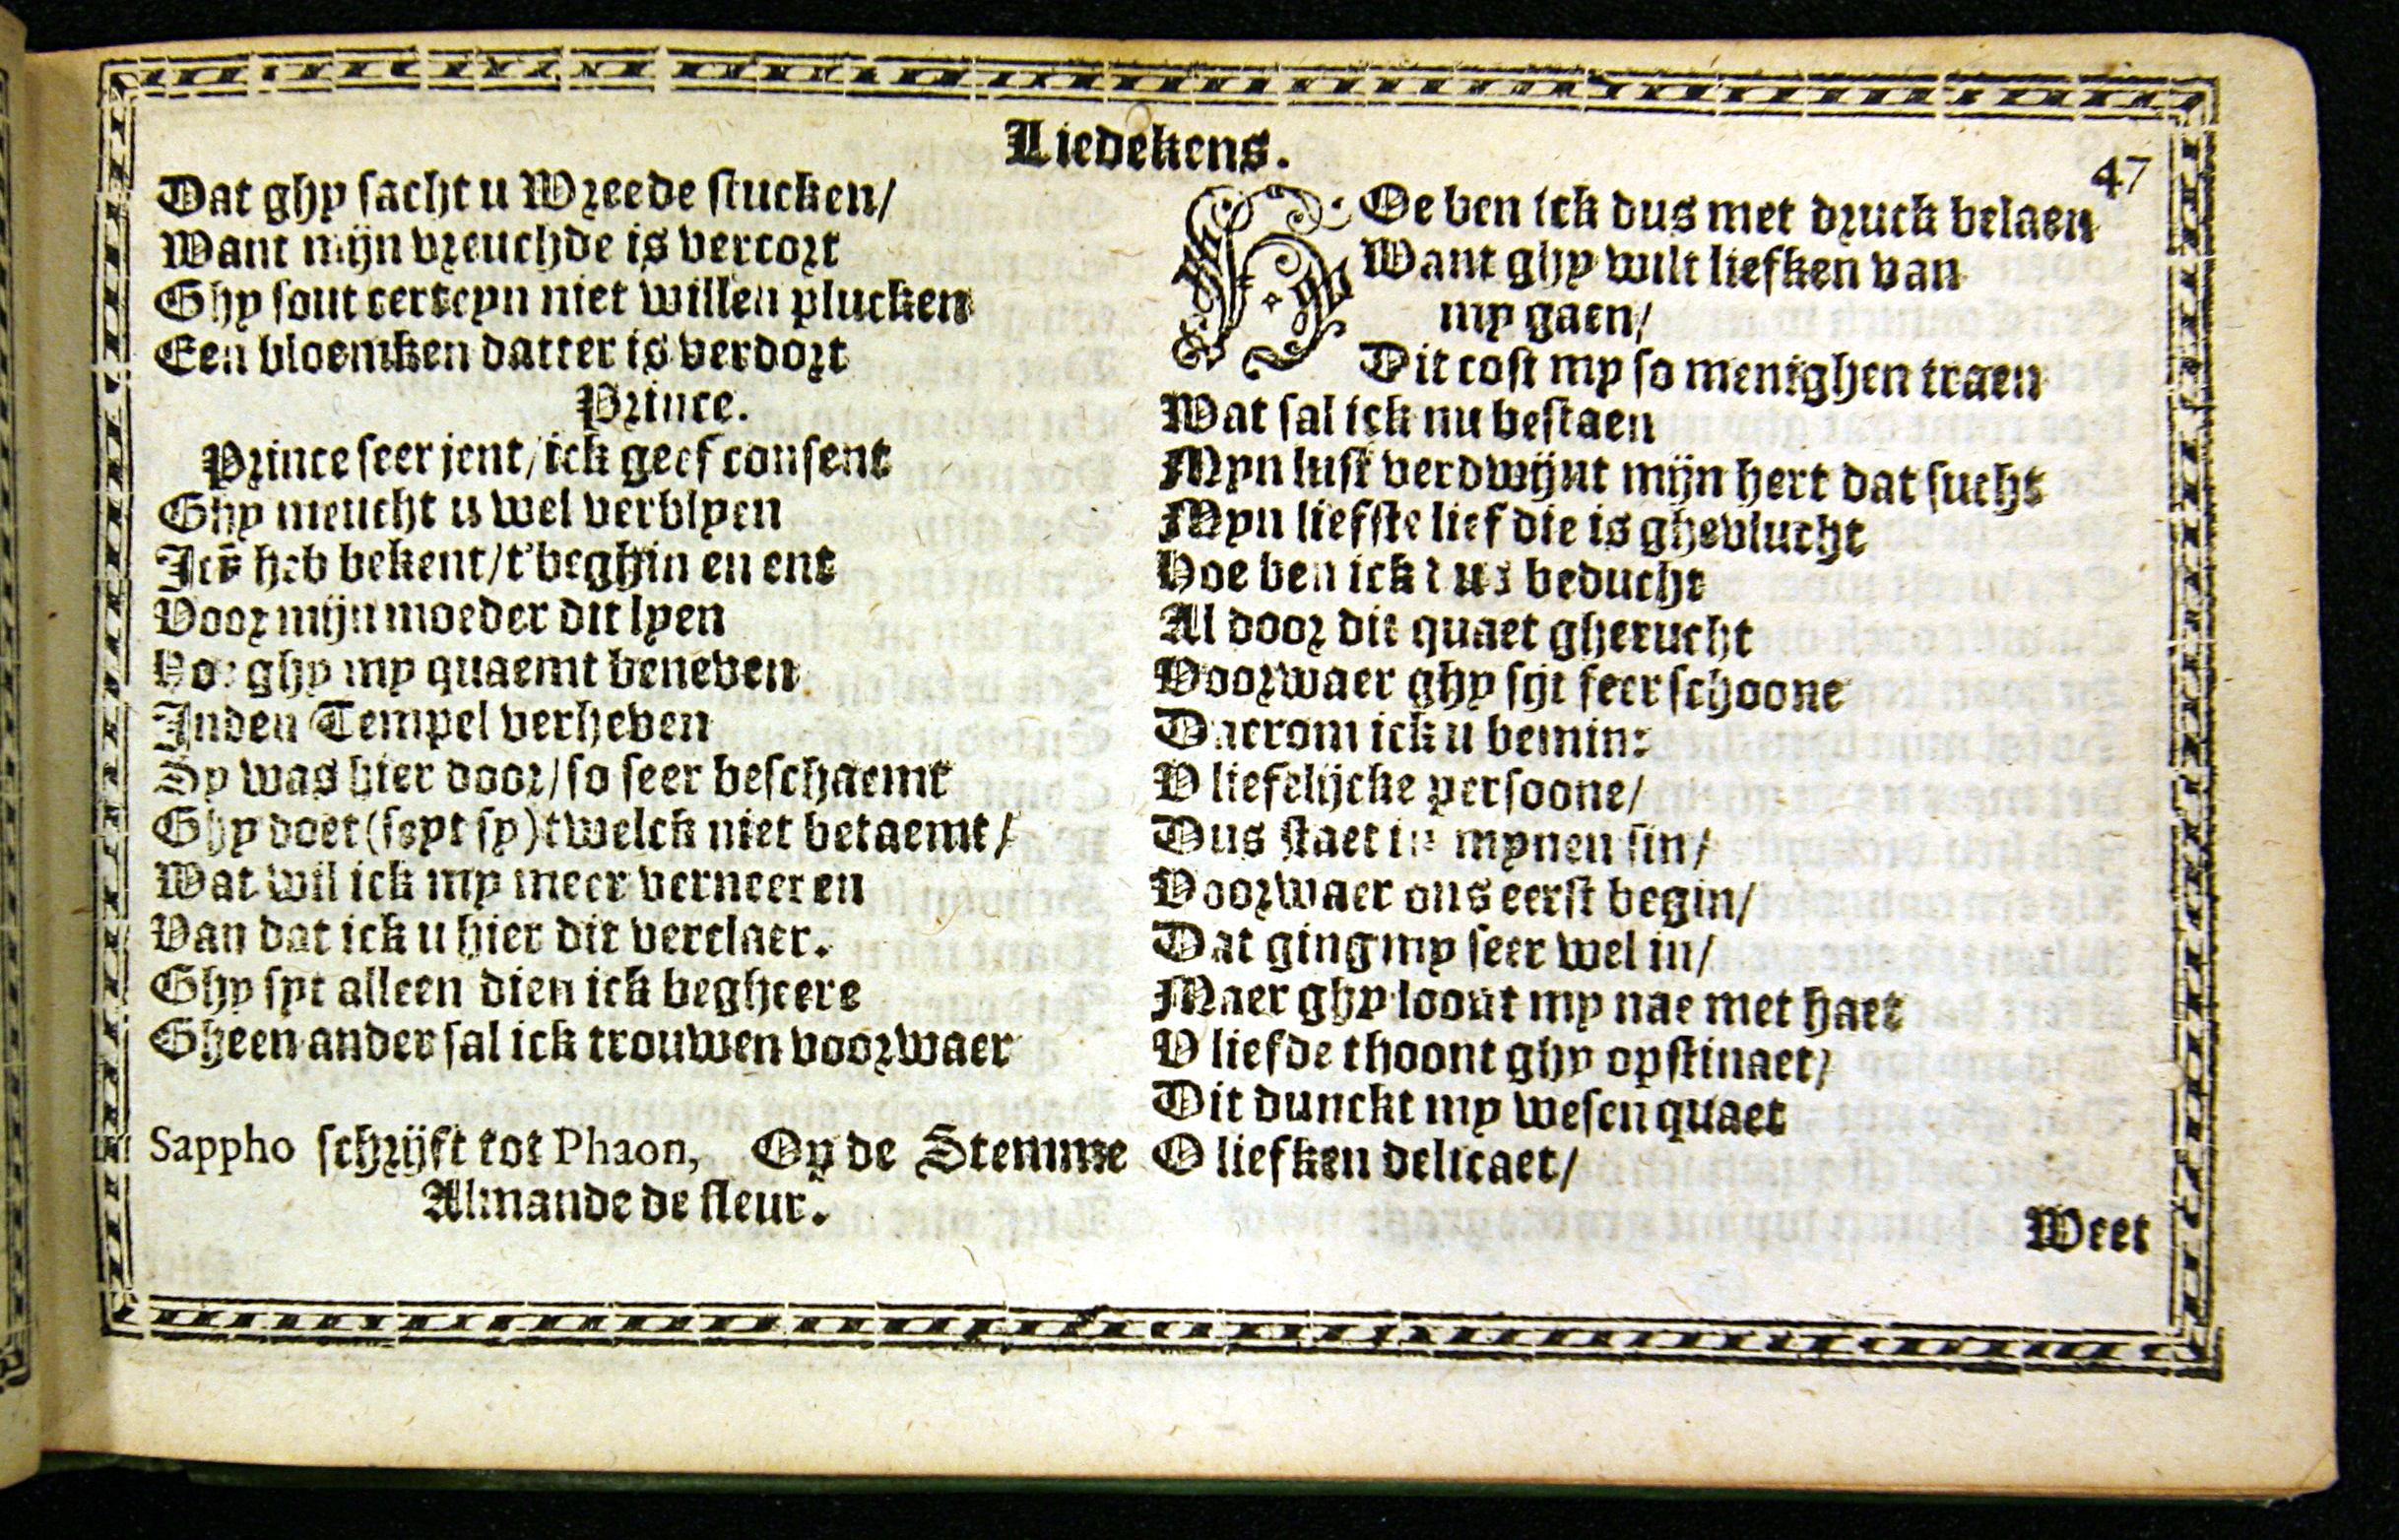 Liedekens.
47
Dat ghy sacht u Wreede stucken/
Want mijn vreuchde is vercort
Ghy sout certeyn niet willen plucken
Een bloemken datter is verdort
Prince.
Prince seer jent/ick geef consent
Ghy meucht u wel verblyen
heb bekent/t'beghin en ent
Voor mijn moeder dit lyen
Hoe ghy my quaemt beneven
Inden Tempel verheven
Sy was hier door/so seer beschaemt
Ghy doet (seyt sy) twelck niet betaemt/
Wat wil ick my meer verneeren
Van dat ick u hier dit verclaer.
Ghy syt alleen dien ick begheere
Gheen ander sal ick trouwen voorwaer
Sappho schrijft tot Phaon, Op de Stemme
Almande de fleur.
HOe ben ick dus met druck belaen
Want ghy wilt liefken van
my gaen/
Dit cost my so menighen traen
Wat sal ick nu bestaen
Myn lust verdwijnt mijn hert dat sucht
Myn liefste lief die is ghevlucht
Hoe ben ick dus beducht
Al door dit quaet gherucht
Voorwaer ghy sijt seer schoone
Daerom ick u bemin:
V liefelijcke persoone/
Dus staet in mynen sin/
Voorwaer ons eerst begin/
Dat ging my seer wel in/
Maer ghy loout my nae met haet
V liefde thoont ghy opstinaet/
Dit dunckt my wesen quaet
O liefken delicaet/
Weet